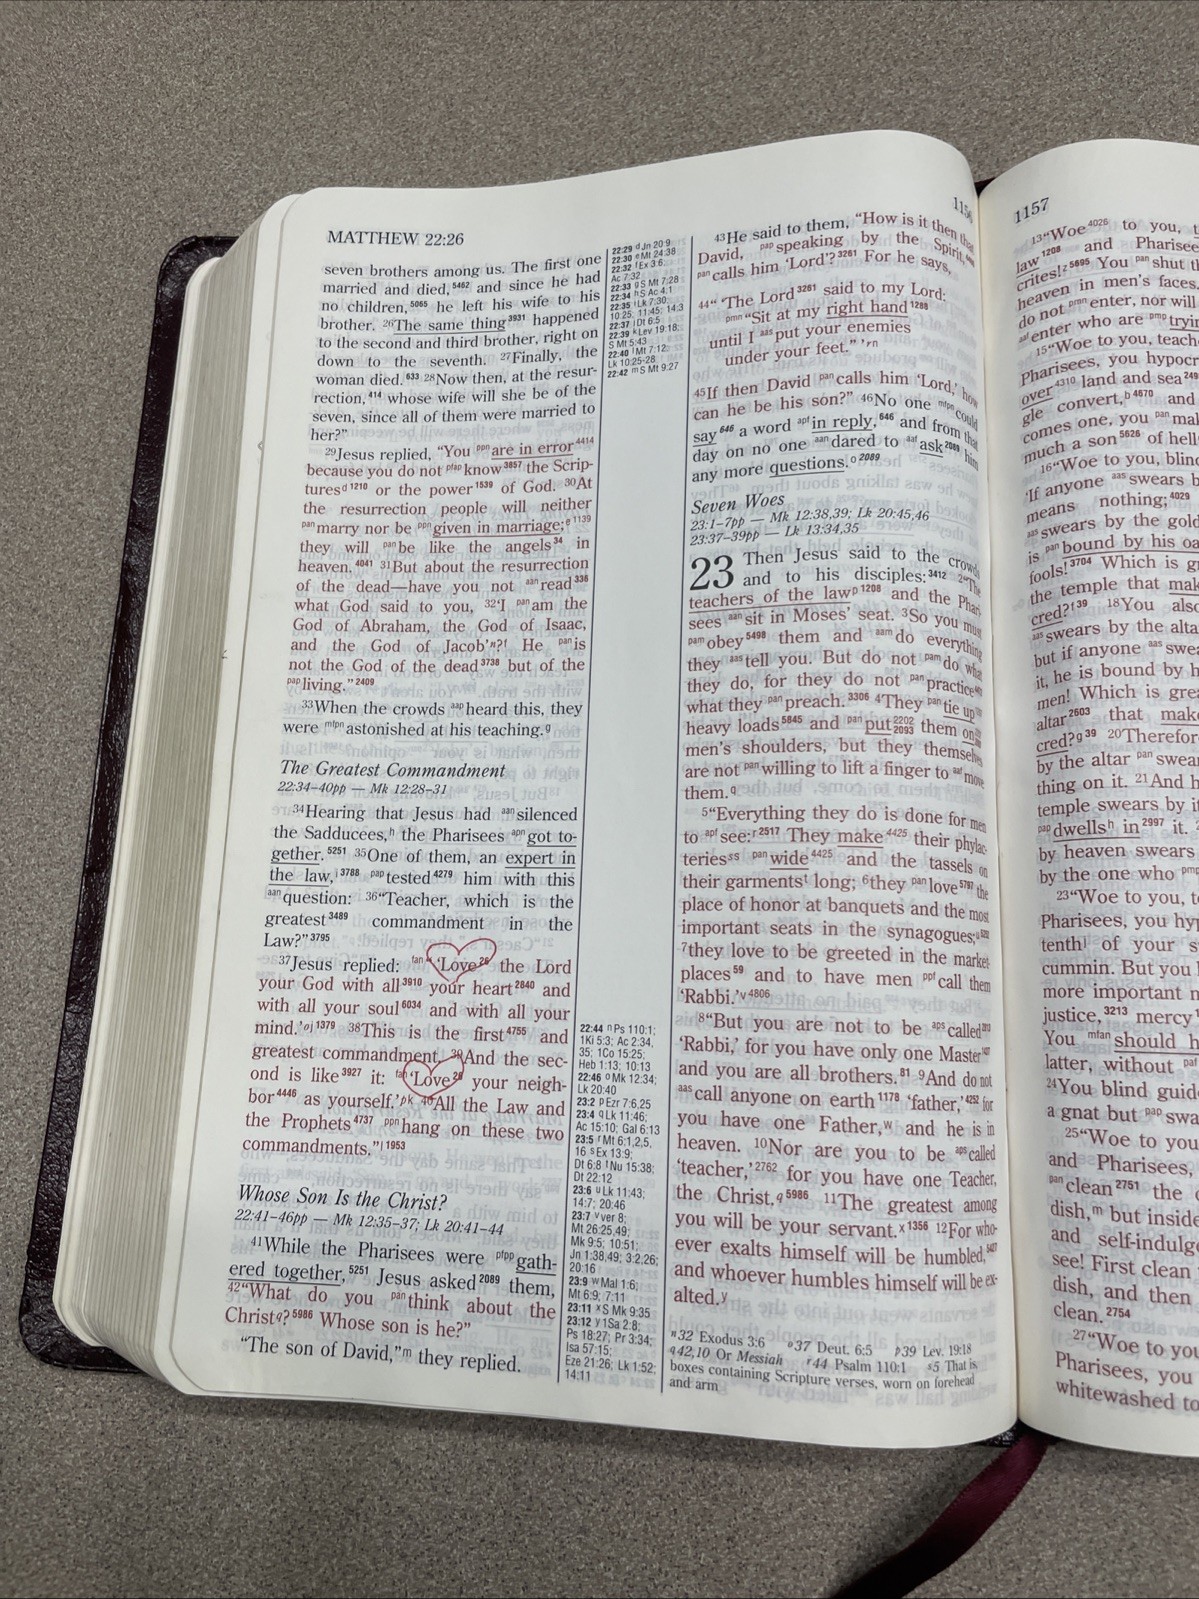 MATTHEW 22:26
seven brothers among us. The first one
married and died,5462 and since he had
no children,5065 he left his wife to his
brother. 26The same thing3931 happened
to the second and third brother, right on
down to the seventh. 27Finally, the
woman died.633 28Now then, at the resur-
rection,414 whose wife will she be of the
seven, since all of them were married to
her?"
29Jesus replied, "You ppnare in error4414
because you do not pfapknow3857 the Scrip-
turesd 1210 or the power1539 of God. 30At
the resurrection people will neither
panmarry nor be ppngiven in marriage;e 1139
they will panbe like the angels34 in
heaven.4041 31But about the resurrection
of the dead—have you not aanread336
what God said to you, 32'I panam the
God of Abraham, the God of Isaac,
and the God of Jacob'n?f He panis
not the God of the dead3738 but of the
papliving."2409
33When the crowds aapheard this, they
were mfpnastonished at his teaching.g
The Greatest Commandment
22:34–40pp — Mk 12:28–31
34Hearing that Jesus had aansilenced
the Sadducees,h the Pharisees apngot to-
gether.5251 35One of them, an expert in
the law,i 3788 paptested4279 him with this
aanquestion: 36"Teacher, which is the
greatest3489 commandment in the
Law?"3795
37Jesus replied: fan" 'Love26 the Lord
your God with all3910 your heart2840 and
with all your soul6034 and with all your
mind.'oj 1379 38This is the first4755 and
greatest commandment. 39And the sec-
ond is like3927 it: fan'Love26 your neigh-
bor4446 as yourself.'pk 40All the Law and
the Prophets4737 ppnhang on these two
commandments."l 1953
Whose Son Is the Christ?
22:41–46pp — Mk 12:35–37; Lk 20:41–44
41While the Pharisees were pfppgath-
ered together,5251 Jesus asked2089 them,
42"What do you panthink about the
Christq?5986 Whose son is he?"
"The son of David,"m they replied.
22:29 d Jn 20:9
22:30 e Mt 24:38
22:32 f Ex 3:6;
Ac 7:32
22:33 g S Mt 7:28
22:34 h S Ac 4:1
22:35 i Lk 7:30;
10:25; 11:45; 14:3
22:37 j Dt 6:5
22:39 k Lev 19:18;
S Mt 5:43
22:40 l Mt 7:12;
Lk 10:25-28
22:42 m S Mt 9:27
22:44 n Ps 110:1;
1Ki 5:3; Ac 2:34,
35; 1Co 15:25;
Heb 1:13; 10:13
22:46 o Mk 12:34;
Lk 20:40
23:2 p Ezr 7:6,25
23:4 q Lk 11:46;
Ac 15:10; Gal 6:13
23:5 r Mt 6:1,2,5,
16 s Ex 13:9;
Dt 6:8 t Nu 15:38;
Dt 22:12
23:6 u Lk 11:43;
14:7; 20:46
23:7 v ver 8;
Mt 26:25,49;
Mk 9:5; 10:51;
Jn 1:38,49; 3:2,26;
20:16
23:9 w Mal 1:6;
Mt 6:9; 7:11
23:11 x S Mk 9:35
23:12 y 1Sa 2:8;
Ps 18:27; Pr 3:34;
Isa 57:15;
Eze 21:26; Lk 1:52;
14:11
43He said to them, "How is it then that
David, papspeaking by the Spirit,
pancalls him 'Lord'?3261 For he says,
44" 'The Lord3261 said to my Lord:
pmn"Sit at my right hand1288
until I aasput your enemies
under your feet." 'rn
45If then David pancalls him 'Lord,' how
can he be his son?" 46No one mfpncould
say646 a word apfin reply,646 and from that
day on no one aandared to aafask2089 him
any more questions.o 2089
Seven Woes
23:1–7pp — Mk 12:38,39; Lk 20:45,46
23:37–39pp — Lk 13:34,35
23 Then Jesus said to the crowds
and to his disciples:3412 2"The
teachers of the lawp 1208 and the Phari-
sees aansit in Moses' seat. 3So you must
pamobey5498 them and aamdo everything
they aastell you. But do not pamdo what
they do, for they do not panpractice
what they panpreach.3306 4They pantie up
heavy loads5845 and panput2202 2093 them on
men's shoulders, but they themselves
are not panwilling to lift a finger to aafmove
them.q
5"Everything they do is done for men
to apfsee:r 2517 They make4425 their phylac-
teriess s panwide4425 and the tassels on
their garmentst long; 6they panlove5797 the
place of honor at banquets and the most
important seats in the synagogues;u
7they love to be greeted in the market-
places59 and to have men ppfcall them
'Rabbi.'v 4806
8"But you are not to be apscalled
'Rabbi,' for you have only one Master
and you are all brothers.81 9And do not
aascall anyone on earth1178 'father,'4252 for
you have one Father,w and he is in
heaven. 10Nor are you to be apscalled
'teacher,'2762 for you have one Teacher,
the Christ.q 5986 11The greatest among
you will be your servant.x 1356 12For who-
ever exalts himself will be humbled,
and whoever humbles himself will be ex-
alted.y
n32 Exodus 3:6 o37 Deut. 6:5 p39 Lev. 19:18
q42,10 Or Messiah r44 Psalm 110:1 s5 That is,
boxes containing Scripture verses, worn on forehead
and arm
1157
13"Woe4026 to you,
law1208 and Pharisee
crites!z 5695 You panshut th
heaven in men's faces.
do not pmnenter, nor will
aafenter who are pmptrying
15"Woe to you, teach
Pharisees, you hypocr
over4310 land and sea249
gle convert,b 4670 and
comes one, you panmal
much a son5626 of hell
16"Woe to you, blind
'If anyone aasswears b
means nothing;4029
aasswears by the gold
is panbound by his oa
fools!3704 Which is gr
the temple that mak
cred?f 39 18You also
aasswears by the alta
but if anyone aasswea
it, he is bound by h
men! Which is grea
altar2603 that make
cred?g 39 20Therefor
by the altar panswear
thing on it. 21And h
temple swears by it
papdwellsh in2997 it.
by heaven swears
by the one who pmp
23"Woe to you, te
Pharisees, you hyp
tenthi of your s
cummin. But you h
more important m
justice,3213 mercy
You mfanshould h
latter, without paf
24You blind guide
a gnat but papswa
25"Woe to you
and Pharisees,
panclean2751 the o
dish,m but inside
and self-indulge
see! First clean
dish, and then
clean.2754
27"Woe to you
Pharisees, you
whitewashed to